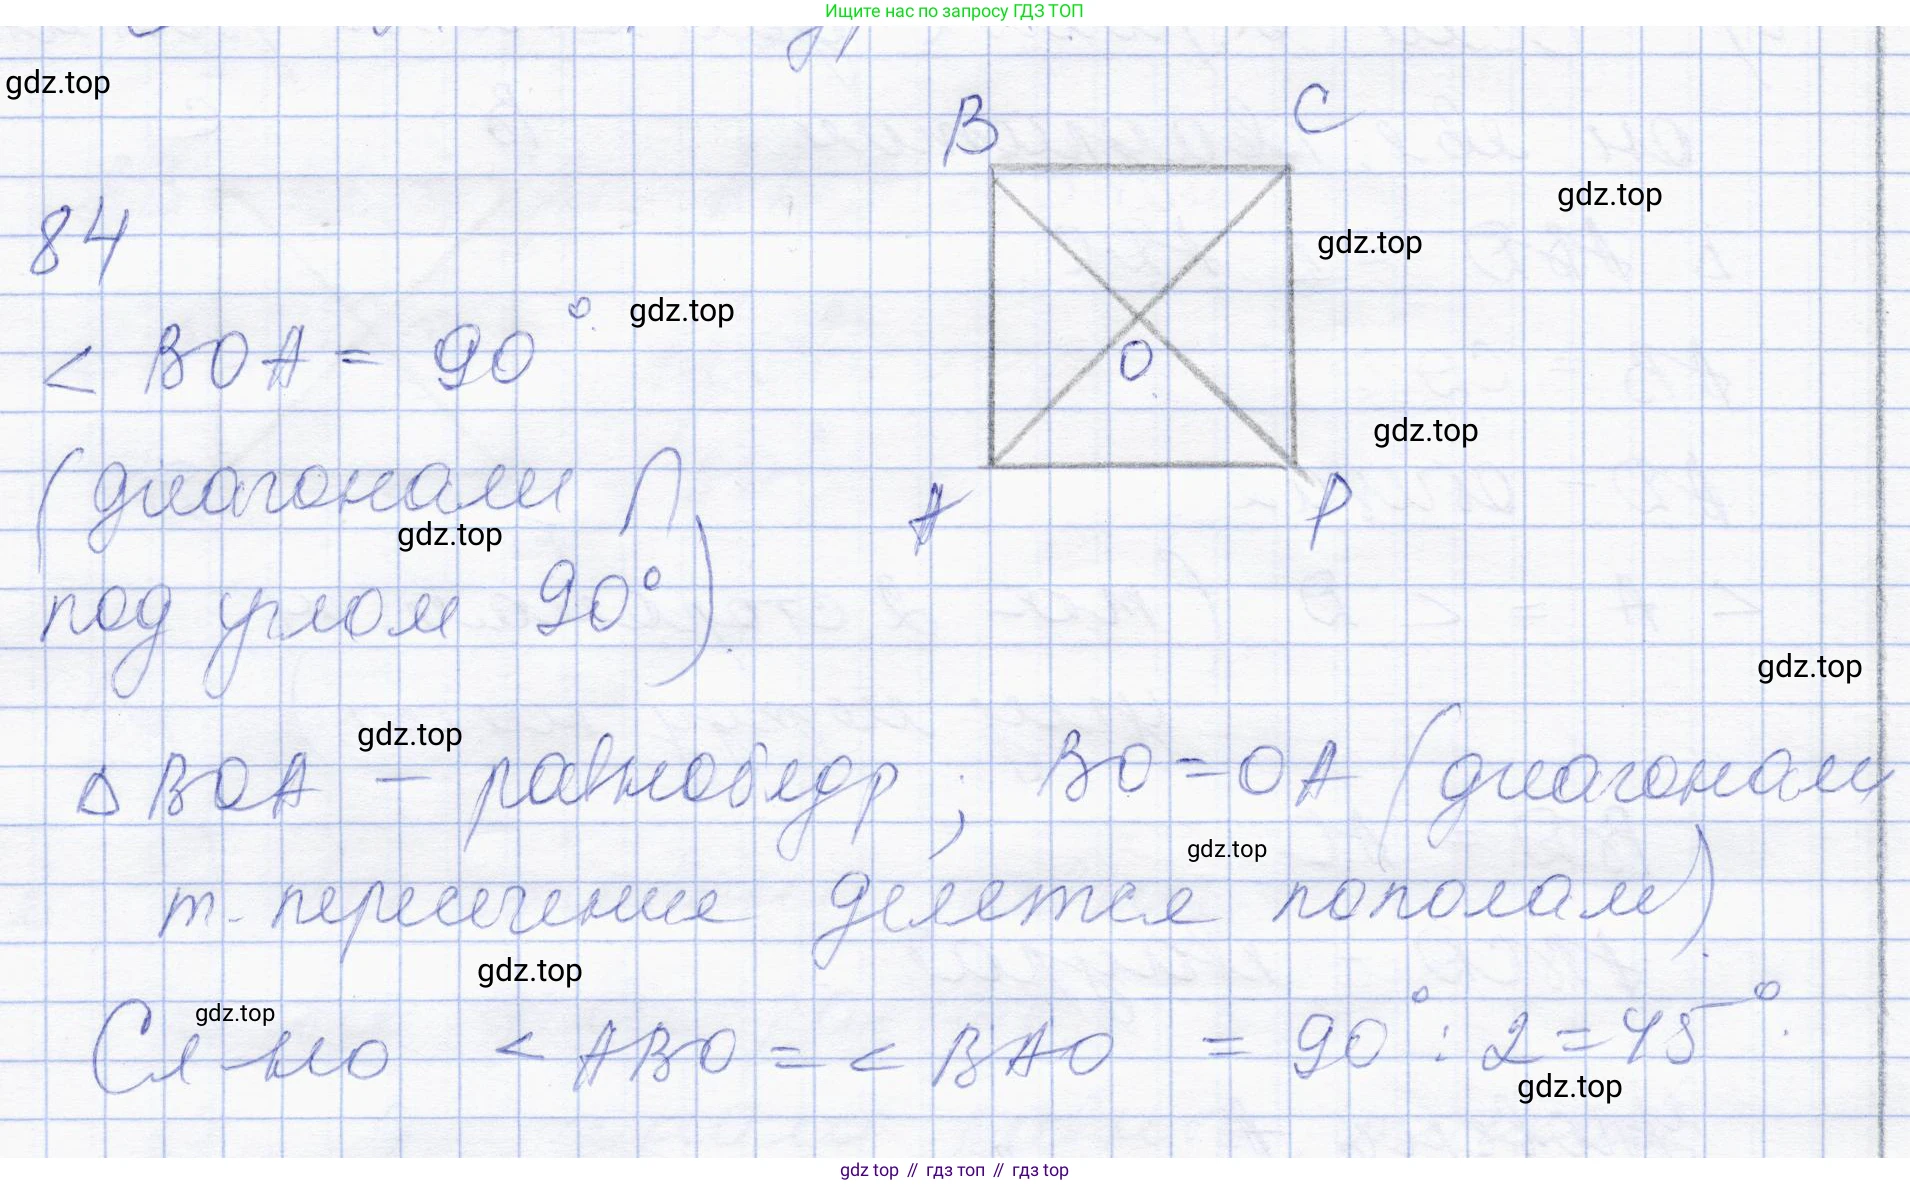 Ищите нас по запросу ГДЗ ТОП
gdz.top
B C
gdz.top
84
gdz.top
< BOA = 90°. gdz.top
O
(диагонали ∩ gdz.top
gdz.top A P
под углом 90°).
gdz.top
gdz.top
△ BOA – равнобедр, BO = OA (диагонали
gdz.top
т. пересечение делятся пополам).
gdz.top
gdz.top
Сл-но < ABO = < BAO = 90° : 2 = 45°.
gdz.top
gdz top // гдз топ // гдз top